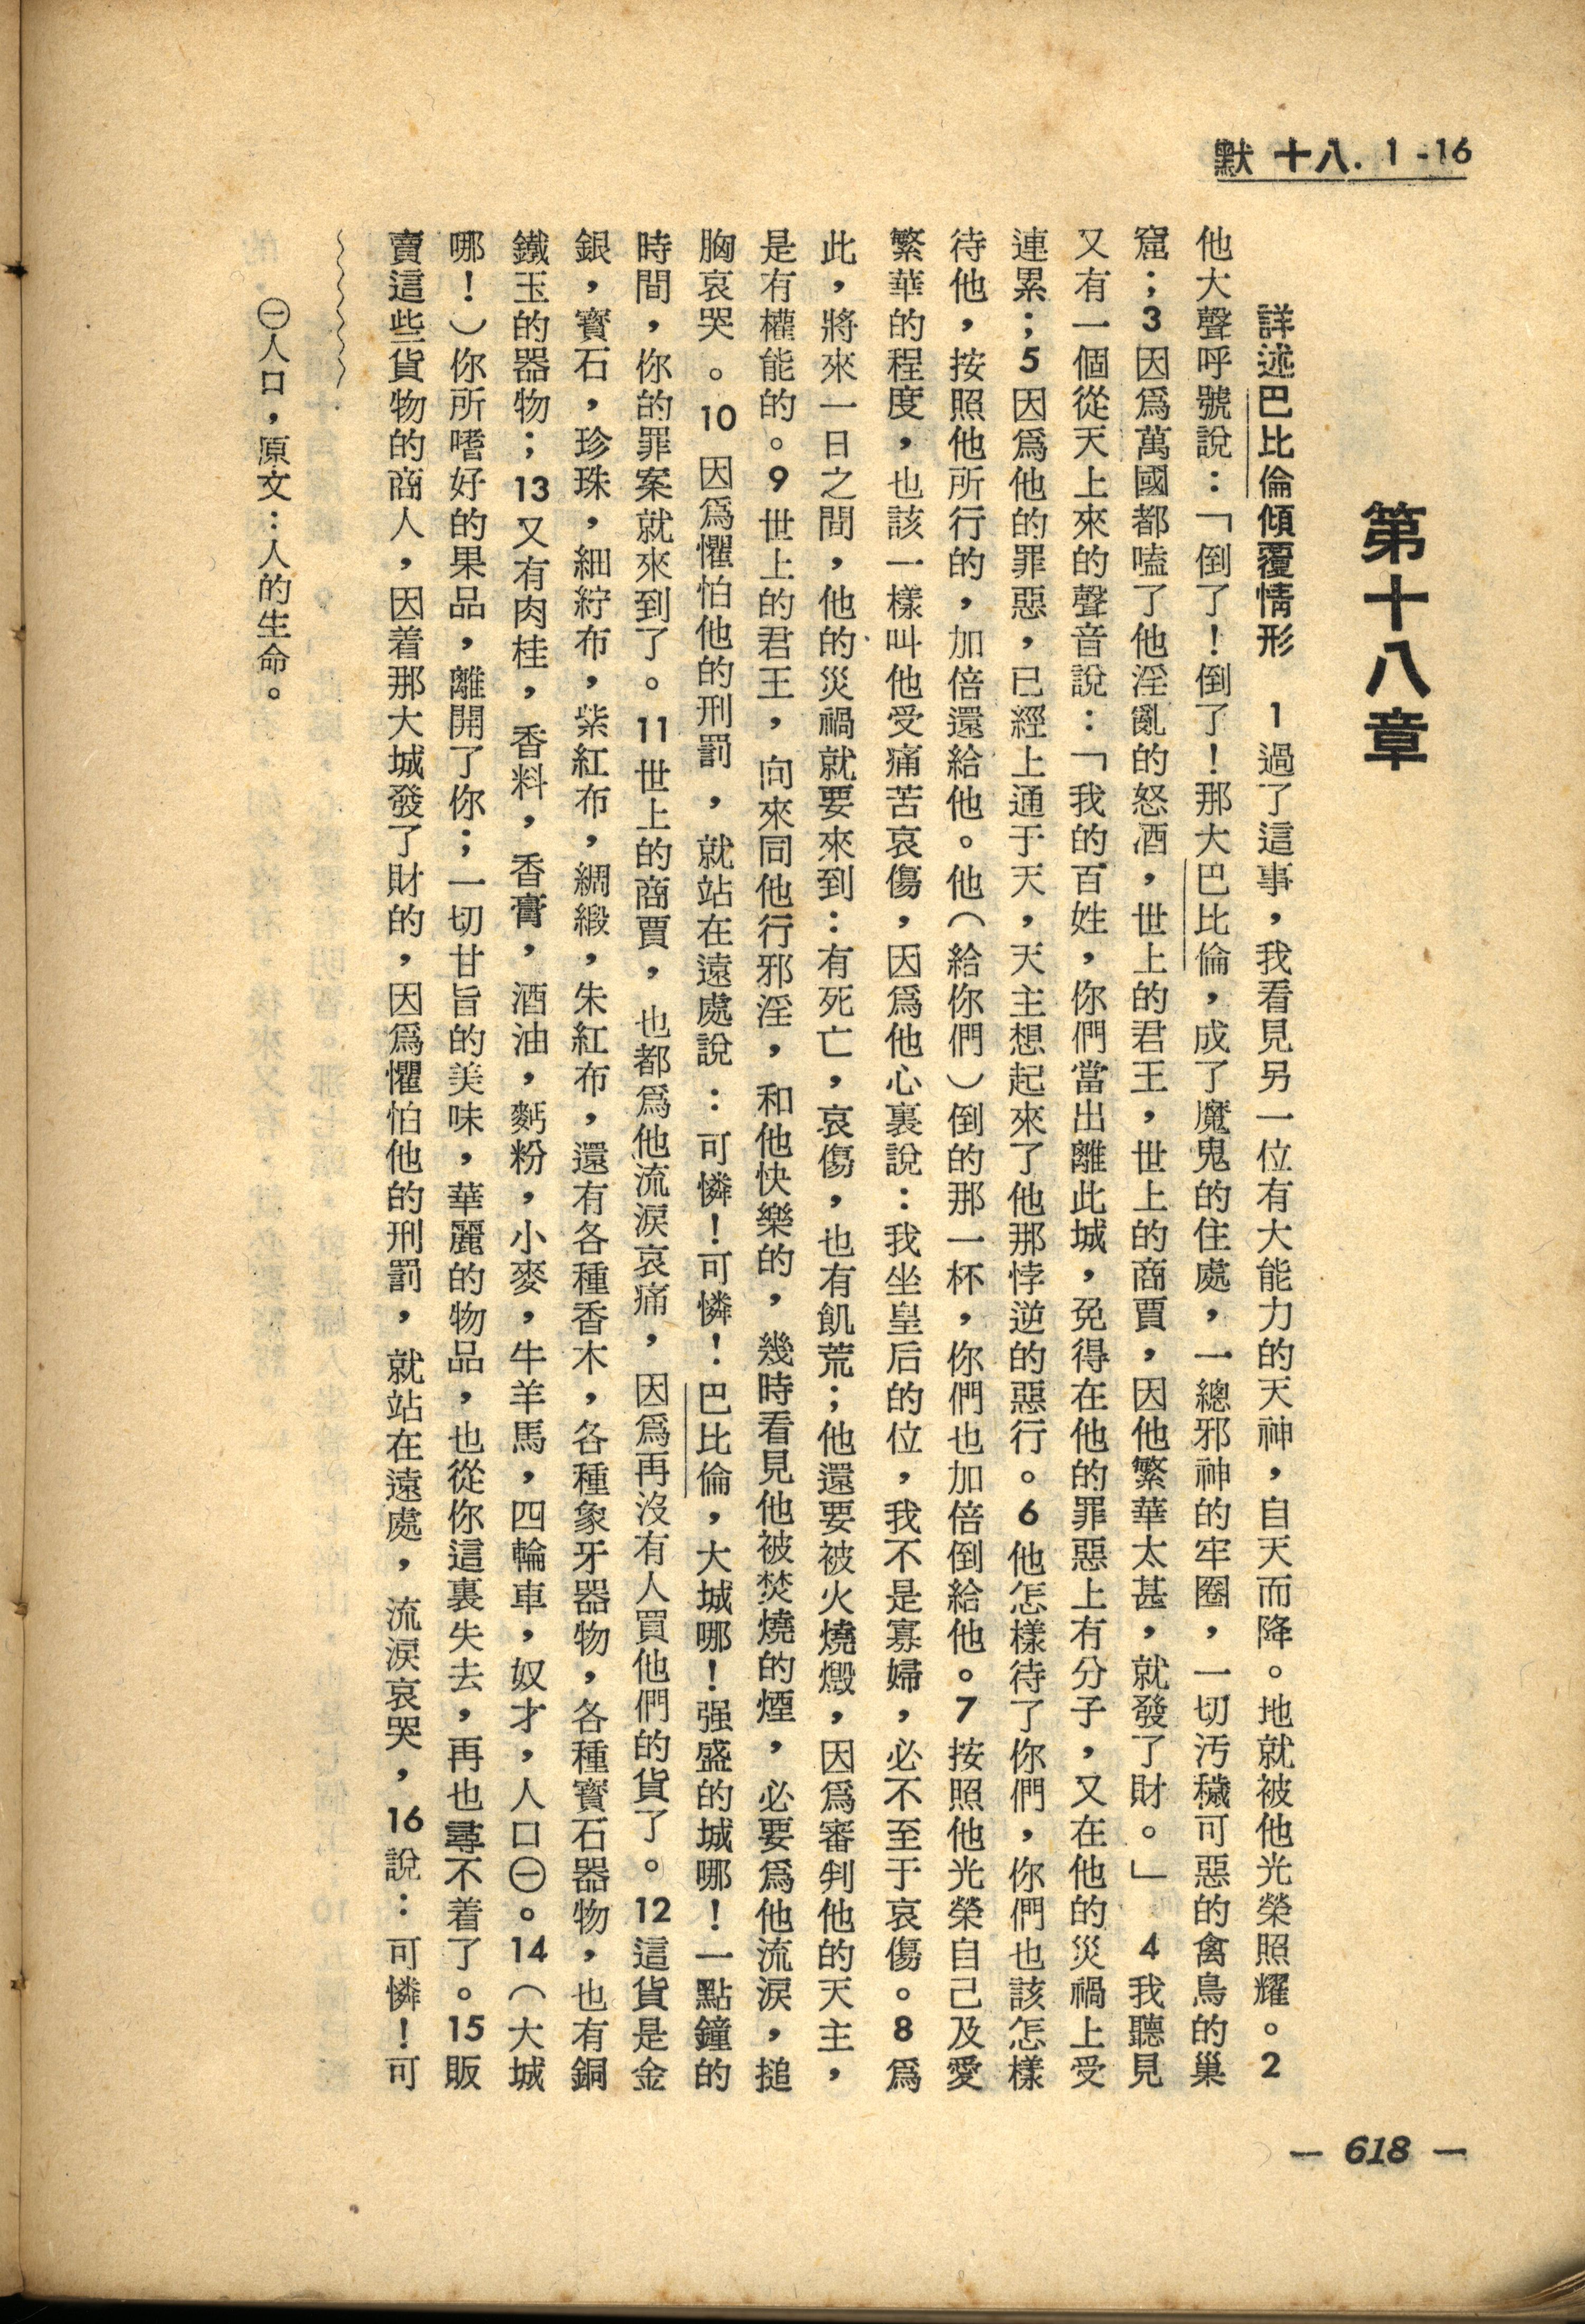 默 十八. 1 -16
第十八章
詳述巴比倫傾覆情形　1過了這事，我看見另一位有大能力的天神，自天而降。地就被他光榮照耀。2
他大聲呼號說：「倒了！倒了！那大巴比倫，成了魔鬼的住處，一總邪神的牢圈，一切汚穢可惡的禽鳥的巢
窟；3因爲萬國都嗑了他淫亂的怒酒，世上的君王，世上的商賈，因他繁華太甚，就發了財。」　4我聽見
又有一個從天上來的聲音說：「我的百姓，你們當出離此城，免得在他的罪惡上有分子，又在他的災禍上受
連累；5因爲他的罪惡，已經上通于天，天主想起來了他那悖逆的惡行。6他怎樣待了你們，你們也該怎樣
待他，按照他所行的，加倍還給他。他（給你們）倒的那一杯，你們也加倍倒給他。7按照他光榮自己及愛
繁華的程度，也該一樣叫他受痛苦哀傷，因爲他心裏說：我坐皇后的位，我不是寡婦，必不至于哀傷。8爲
此，將來一日之間，他的災禍就要來到：有死亡，哀傷，也有飢荒；他還要被火燒燬，因爲審判他的天主，
是有權能的。9世上的君王，向來同他行邪淫，和他快樂的，幾時看見他被焚燒的煙，必要爲他流淚，搥
胸哀哭。10因爲懼怕他的刑罰，就站在遠處說：可憐！可憐！巴比倫，大城哪！强盛的城哪！一點鐘的
時間，你的罪案就來到了。11世上的商賈，也都爲他流淚哀痛，因爲再沒有人買他們的貨了。12這貨是金
銀，寶石，珍珠，細紵布，紫紅布，綢緞，朱紅布，還有各種香木，各種象牙器物，各種寶石器物，也有銅
鐵玉的器物；13又有肉桂，香料，香膏，酒油，麪粉，小麥，牛羊馬，四輪車，奴才，人口㊀。14（大城
哪！）你所嗜好的果品，離開了你；一切甘旨的美味，華麗的物品，也從你這裏失去，再也尋不着了。15販
賣這些貨物的商人，因着那大城發了財的，因爲懼怕他的刑罰，就站在遠處，流淚哀哭，16說：可憐！可
㊀人口，原文：人的生命。
— 618 —